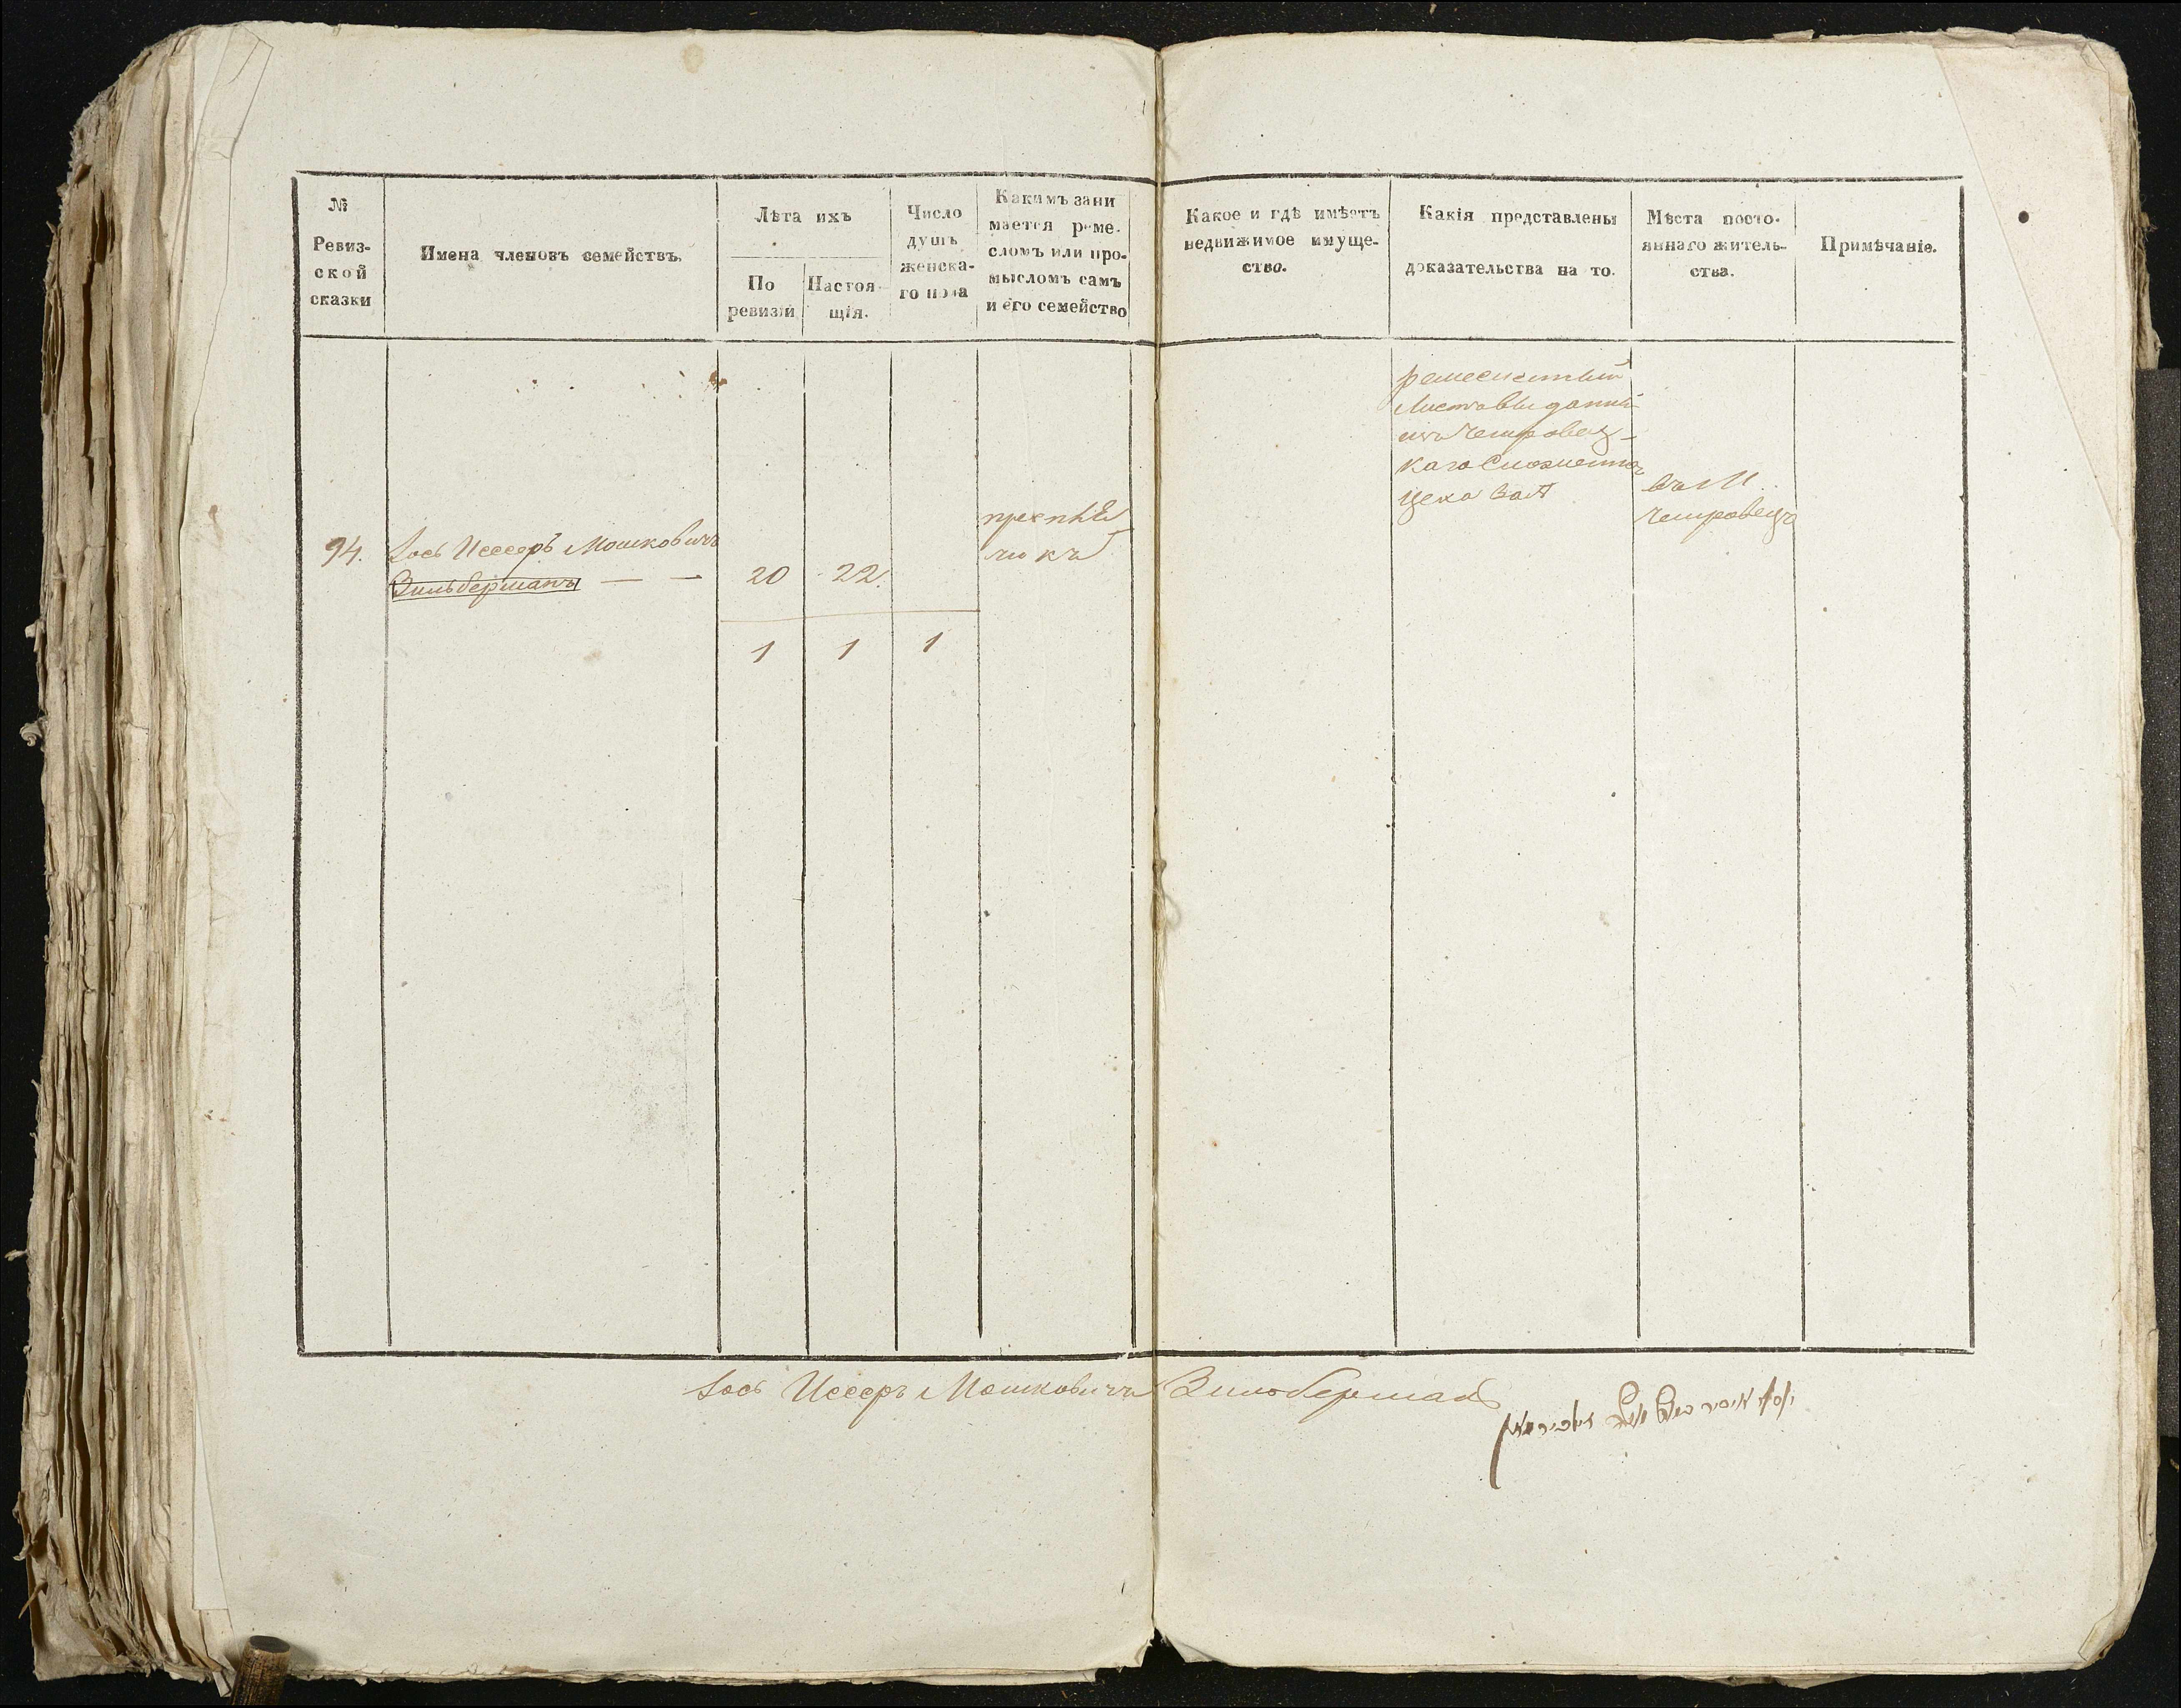 №
Ревиз-
ской
сказки
Имена членовъ семействъ.
Лѣта ихъ
По
ревизіи
Настоя-
щія.
Число
душъ
женска-
го пола
Какимъ зани
мается реме-
сломъ или про-
мысломъ самъ
и его семейство
Какое и гдѣ имѣетъ
недвижимое имуще-
ство.
Какія представлены
доказательства на то.
Мѣста посто-
яннаго житель-
ства.
Примѣчаніе.
94.
Іось Иссеръ Мошковичъ
Зильберманъ — —
20
22.
1
1
1
Листъ выданный
изъ Чемровец-
каго
цеха за
въ М.
Чемровецъ
Іось Иссеръ Мошковичъ Зильберманъ